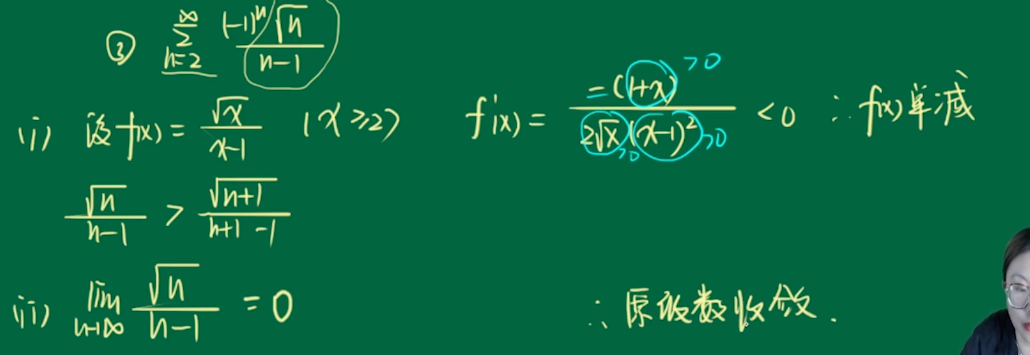 ③ \sum_{n=2}^{\infty} \frac{(-1)^n \sqrt{n}}{n-1}
(i) 设 f(x) = \frac{\sqrt{x}}{x-1} (x ≥ 2) f'(x) = \frac{-(1+x)}{2\sqrt{x}(x-1)^2} < 0 ∴ f(x)单减
>0
>0 >0
\frac{\sqrt{n}}{n-1} > \frac{\sqrt{n+1}}{n+1-1}
(ii) \lim_{n→∞} \frac{\sqrt{n}}{n-1} = 0 ∴ 原级数收敛.